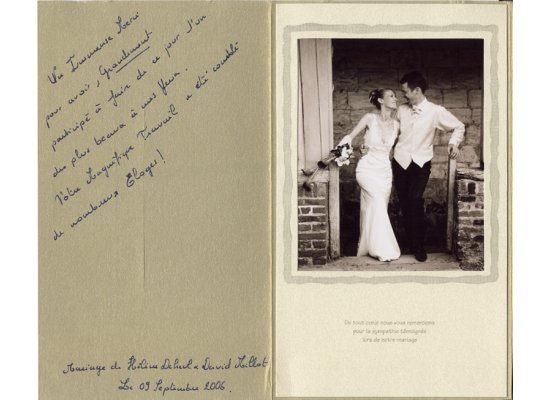 Un Immense Merci
pour avoir, Grandement
participé à faire de ce jour l'un
des plus beaux à nos yeux.
Votre Magnifique Travail a été comblé
de nombreux Eloges!
Mariage de Hélène & David
Le 09 Septembre 2006.
De tout cœur nous vous remercions
pour la sympathie témoignée
lors de notre mariage